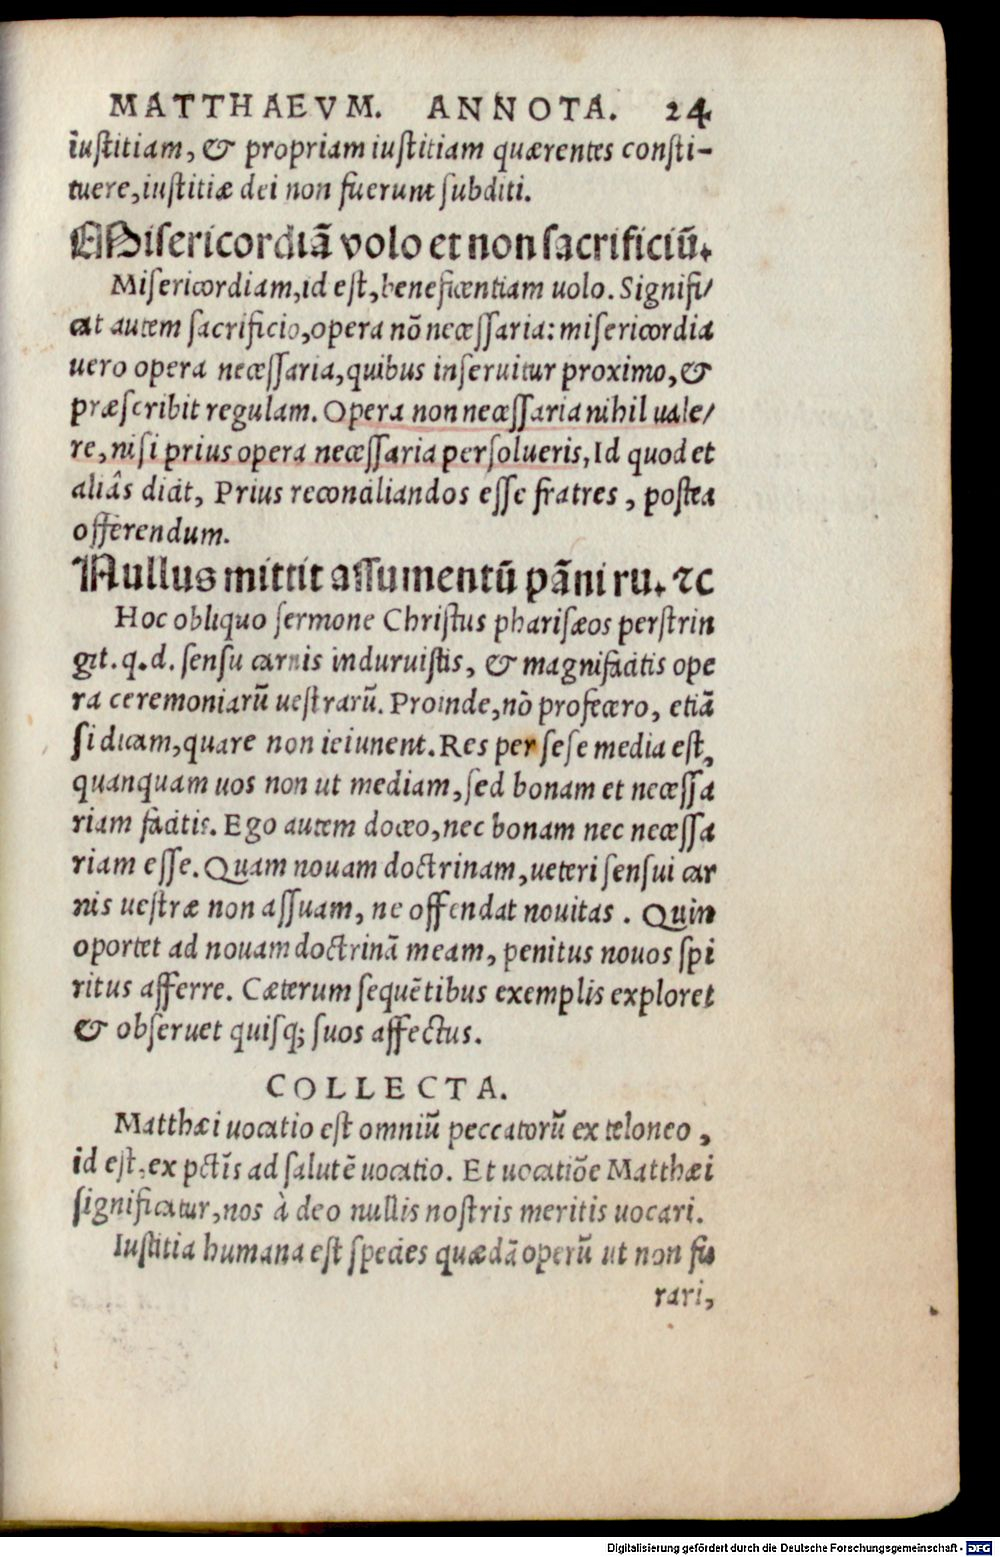 MATTHAEVM. ANNOTA. 24
iustitiam, & propriam iustitiam quærentes consti-
tuere, iustitiæ dei non fuerunt subditi.
Misericordiā volo et non sacrificiū.
Misericordiam, id est, beneficentiam uolo. Signifi/
cat autem sacrificio, opera nō necessaria: misericordia
uero opera necessaria, quibus inseruitur proximo, &
præscribit regulam. Opera non necessaria nihil uale/
re, nisi prius opera necessaria persolueris, Id quod et
aliâs dicit, Prius reconciliandos esse fratres, postea
offerendum.
Nullus mittit assumentū pāni ru. ⁊c
Hoc obliquo sermone Christus pharisæos perstrin
git. q. d. sensu carnis induruistis, & magnifacitis ope
ra ceremoniarū uestrarū. Proinde, nō profecero, etiā
si dicam, quare non ieiunent. Res per sese media est,
quanquam uos non ut mediam, sed bonam et necessa
riam facitis. Ego autem doceo, nec bonam nec necessa
riam esse. Quam nouam doctrinam, ueteri sensui car
nis uestræ non assuam, ne offendat nouitas. Quin
oportet ad nouam doctrinā meam, penitus nouos spi
ritus afferre. Cæterum sequētibus exemplis exploret
& obseruet quisq; suos affectus.
COLLECTA.
Matthæi uocatio est omniū peccatorū ex teloneo,
id est, ex pctīs ad salutē uocatio. Et uocatiōe Matthæi
significatur, nos à deo nullis nostris meritis uocari.
Iustitia humana est species quædā operū ut non fu
rari,
Digitalisierung gefördert durch die Deutsche Forschungsgemeinschaft - DFG